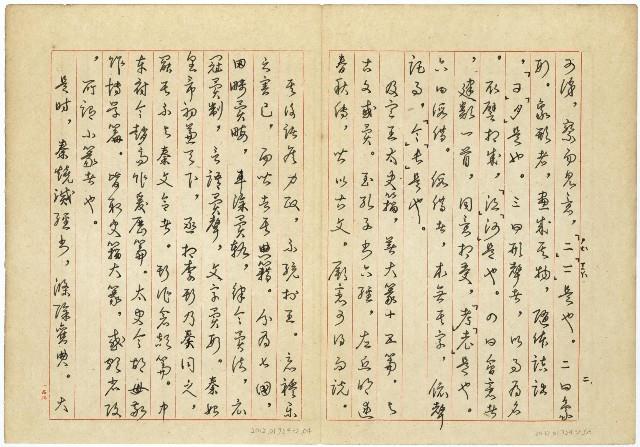 二
可識,察而見意,「二」「二」是也。二曰象
形。象形者,畫成其物,隨體詰詘
,「日」「月」是也。三曰形聲者,以事為名
,取譬相成,「江」「河」是也。四曰會意者
,建類一首,同意相受,「考」「老」是也。
六曰假借。假借者,本無其字,依聲
託事,「令」「長」是也。
及宣王太史籀,著大篆十五篇,與
古文或異。至孔子書六經,左丘明述
春秋傳,皆以古文。厥意可得而說。
其後諸侯力政,不統於王。惡禮樂
之害已,而皆去其典籍。分為七國,
田疇異畮,車涂異軌,律令異法,衣
冠異制,言語異聲,文字異形。秦始
皇帝初兼天下,丞相李斯乃奏同之,
罷其不與秦文合者。斯作倉頡篇。中
車府令趙高作爰歷篇。太史令胡毋敬
作博學篇。皆取史籀大篆,或頗省改
,所謂小篆者也。
是時,秦燒滅經書,滌除舊典。大